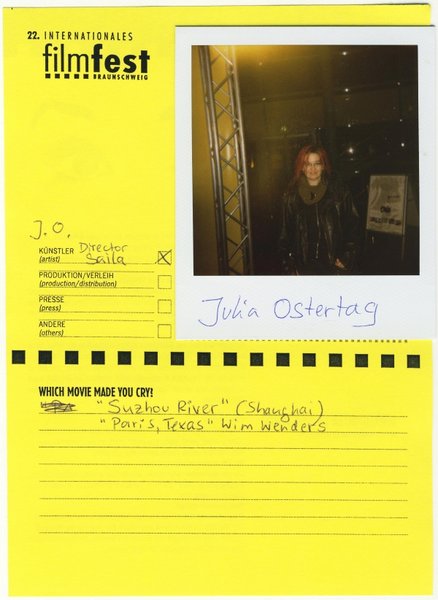 22. INTERNATIONALES
filmfest
BRAUNSCHWEIG
J.O.
KÜNSTLER Director
(artist) Saila
PRODUKTION/VERLEIH
(production/distribution)
PRESSE
(press)
ANDERE
(others)
Julia Ostertag
WHICH MOVIE MADE YOU CRY?
"Suzhou River" (Shanghai)
"Paris, Texas" Wim Wenders